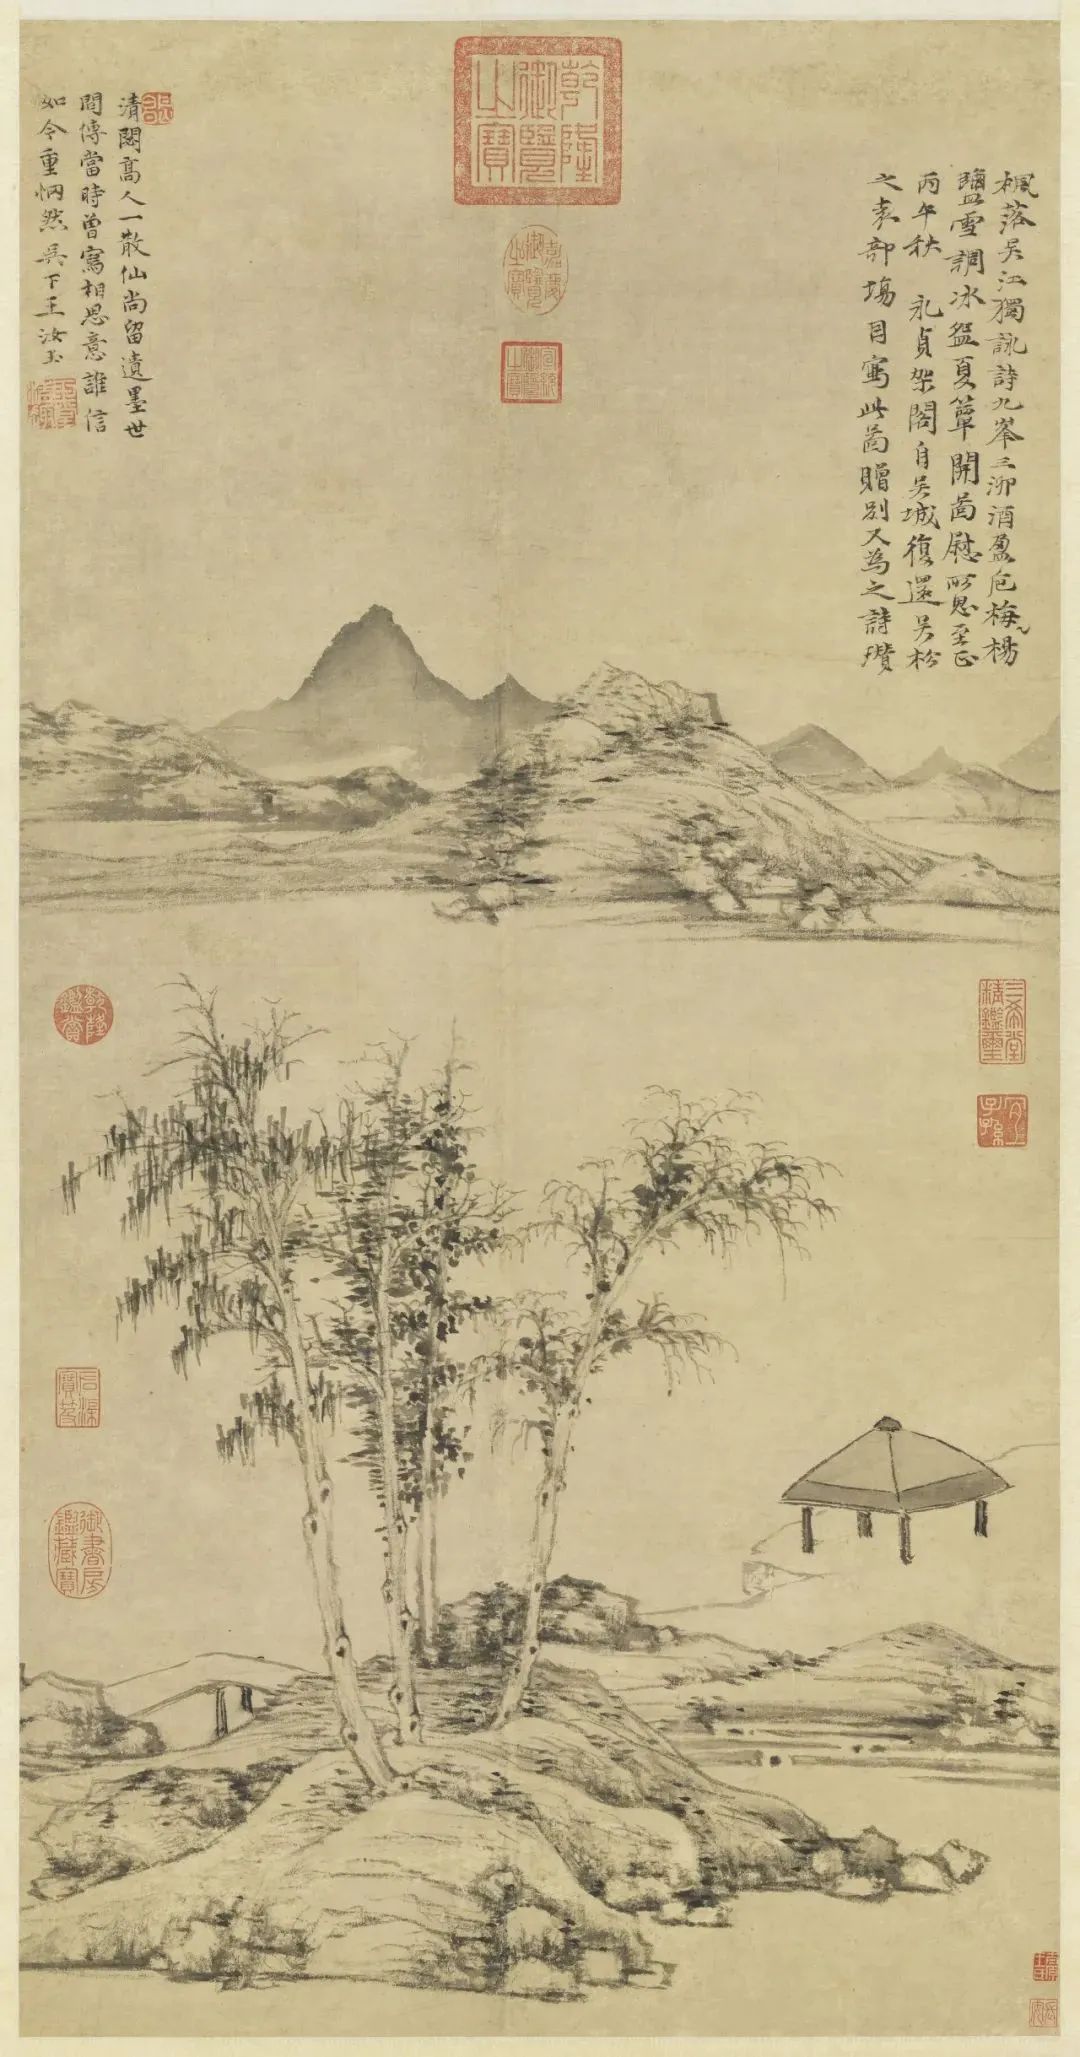 楓落吳江獨詠詩九峯三泖酒盈巵梅楊
鹽雪調冰盌夏簟開啚慰所思至正
丙午秋 永貞架閣自吳城復還吳松
之袁部場因寫此啚贈別又為之詩瓚
乾隆御覽之寶
嘉慶御覽之寶
宣統御覽之寶
清閟高人一散仙尚留遺墨世
間傳當時曾寫相思意誰信
如今重惘然吳下王汝玉
三希堂精鑑璽
宜子孫
乾隆鑑賞
石渠寶笈
御書房鑑藏寶